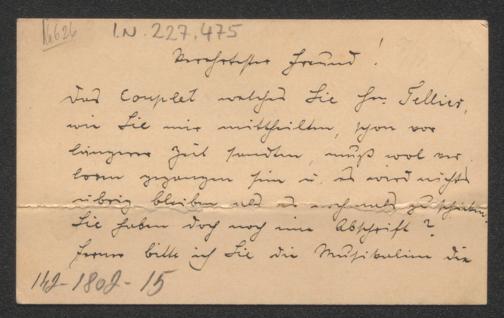 16626
I.N. 227.475
Verehrtester Freund!
Das Couplet welches Sie Hr. Tellier,
wie Sie mir mittheilten, schon vor
längerer Zeit sandten, muß wol ver
loren gegangen sein u. es wird nichts
übrig bleiben als es nochmals zu schicken.
Sie haben doch noch eine Abschrift?
Ferner bitte ich Sie die Musikalien die